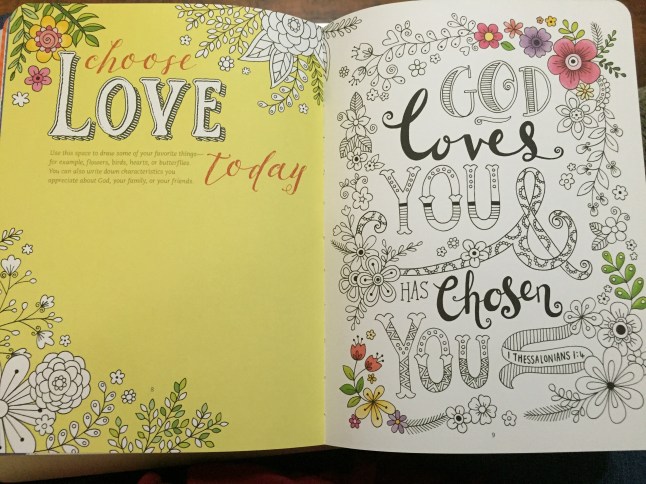 choose
LOVE
today
Use this space to draw some of your favorite things—
for example, flowers, birds, hearts, or butterflies.
You can also write down characteristics you
appreciate about God, your family, or your friends.
8
GOD
loves
YOU &
HAS chosen
YOU
1 THESSALONIANS 1:4
9